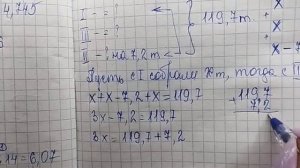 4,745
I - = ?
III - = ?
II - ?, на 7,2 т
119,7 т.
+ x
x
x - 7
Пусть с I собрали x т, тогда с II
x + x - 7,2 + x = 119,7
3x - 7,2 = 119,7
3x = 119,7 + 7,2
119,7
+
7,2
,14 = 6,07